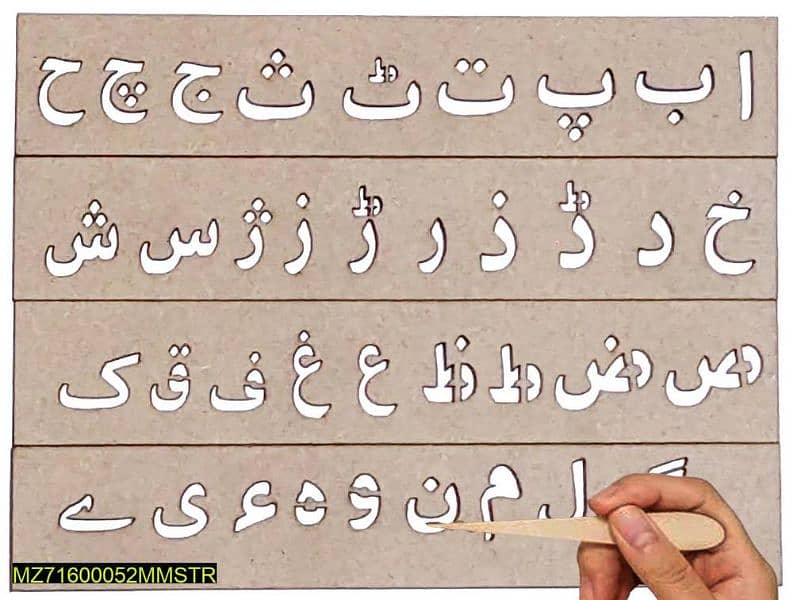 ا ب پ ت ٹ ث ج چ ح
خ د ڈ ذ ر ڑ ز ژ س ش
ص ض ط ظ ع غ ف ق ک
گ ل م ن و ہ ء ی ے
MZ71600052MMSTR